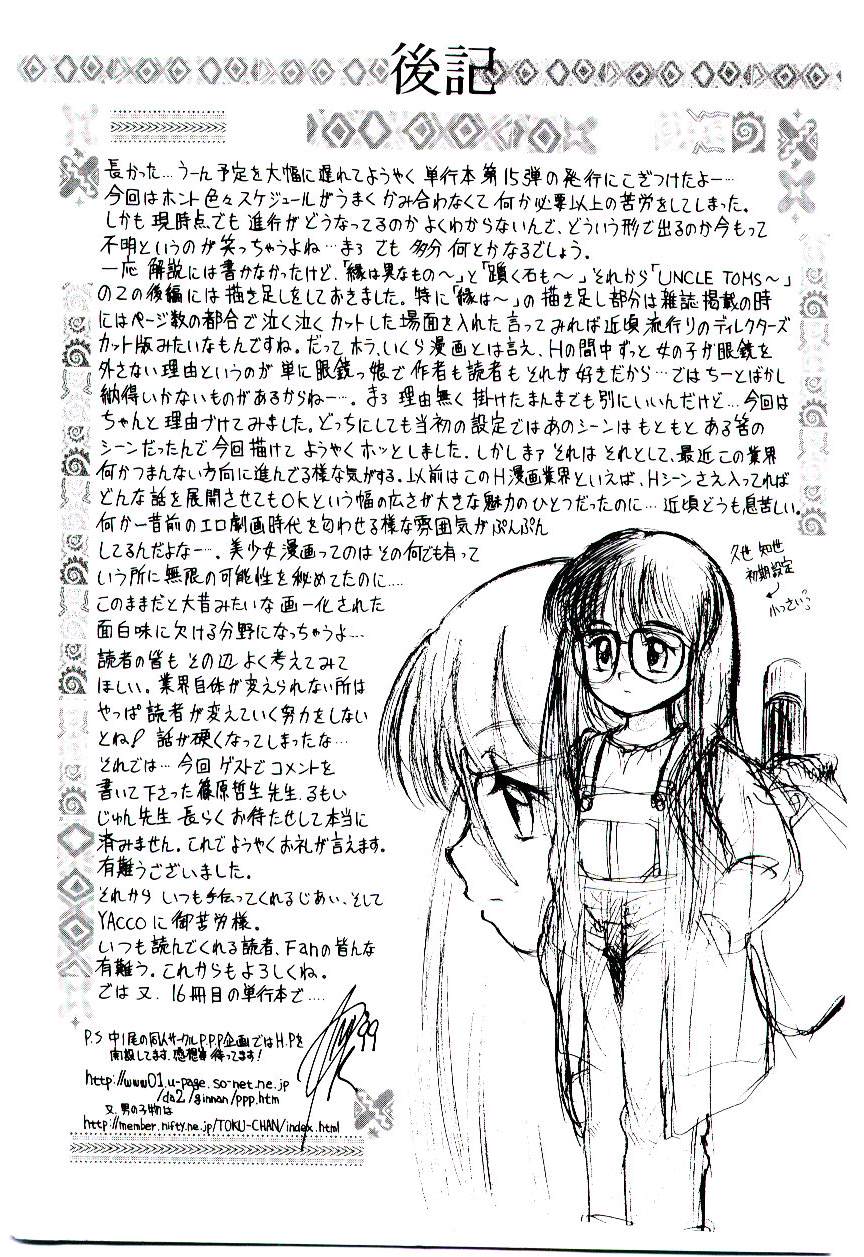 後記
長かった…うーん予定を大幅に遅れてようやく単行本第15弾の発行にこぎつけたよー…
今回はホント色々スケジュールがうまくかみ合わなくて何か必要以上の苦労をしてしまった。
しかも現時点でも進行がどうなってるのかよくわからないんで、どういう形で出るのか今もって
不明というのが笑っちゃうよね…まぁでも多分何とかなるでしょう。
一応解説には書かなかったけど、「縁は異なもの〜」と「躓く石も〜」それから「UNCLE TOMS〜」
の2の後編には描き足しをしておきました。特に「縁は〜」の描き足し部分は雑誌掲載の時
にはページ数の都合で泣く泣くカットした場面を入れた言ってみれば近頃流行りのディレクターズ
カット版みたいなもんですね。だってホラ、いくら漫画とは言え、Hの間中ずっと女の子が眼鏡を
外さない理由というのが単に眼鏡っ娘で作者も読者もそれが好きだから…ではちーとばかし
納得いかないものがあるからねー…。まぁ理由無く掛けたまんまでも別にいいんだけど…今回は
ちゃんと理由づけてみました。どっちにしても当初の設定ではあのシーンはもともとある筈の
シーンだったんで今回描けてようやくホッとしました。しかしまァそれはそれとして、最近この業界
何かつまんない方向に進んでる様な気がする。以前はこのH漫画業界といえば、Hシーンさえ入ってれば
どんな話を展開させてもOKという幅の広さが大きな魅力のひとつだったのに…近頃どうも息苦しい。
何か一昔前のエロ劇画時代を匂わせる様な雰囲気がぷんぷん
してるんだよなー…。美少女漫画ってのはその何でも有って
いう所に無限の可能性を秘めてたのに…
このままだと大昔みたいな画一化された
面白味に欠ける分野になっちゃうよ…
読者の皆もその辺よく考えてみて
ほしい。業界自体が変えられない所は
やっぱ読者が変えていく努力をしない
とね!話が硬くなってしまったな…
それでは…今回ゲストでコメントを
書いて下さった篠原哲生先生、るもい
じゅん先生長らくお待たせして本当に
済みません。これでようやくお礼が言えます。
有難うございました。
それからいつも手伝ってくれるじあい、そして
YACCOに御苦労様。
いつも読んでくれる読者、Fanの皆んな
有難う。これからもよろしくね。
では又、16冊目の単行本で…
'99
P.S 中ノ尾の同人サークルP.P.P企画ではH.Pを
開設してます。感想等待ってます!
http://www01.u-page.so-net.ne.jp
/da2/ginnan/ppp.htm
又、男の子物は
http://member.nifty.ne.jp/TOKU-CHAN/index.html
久世 知世
初期設定
小っさいっ